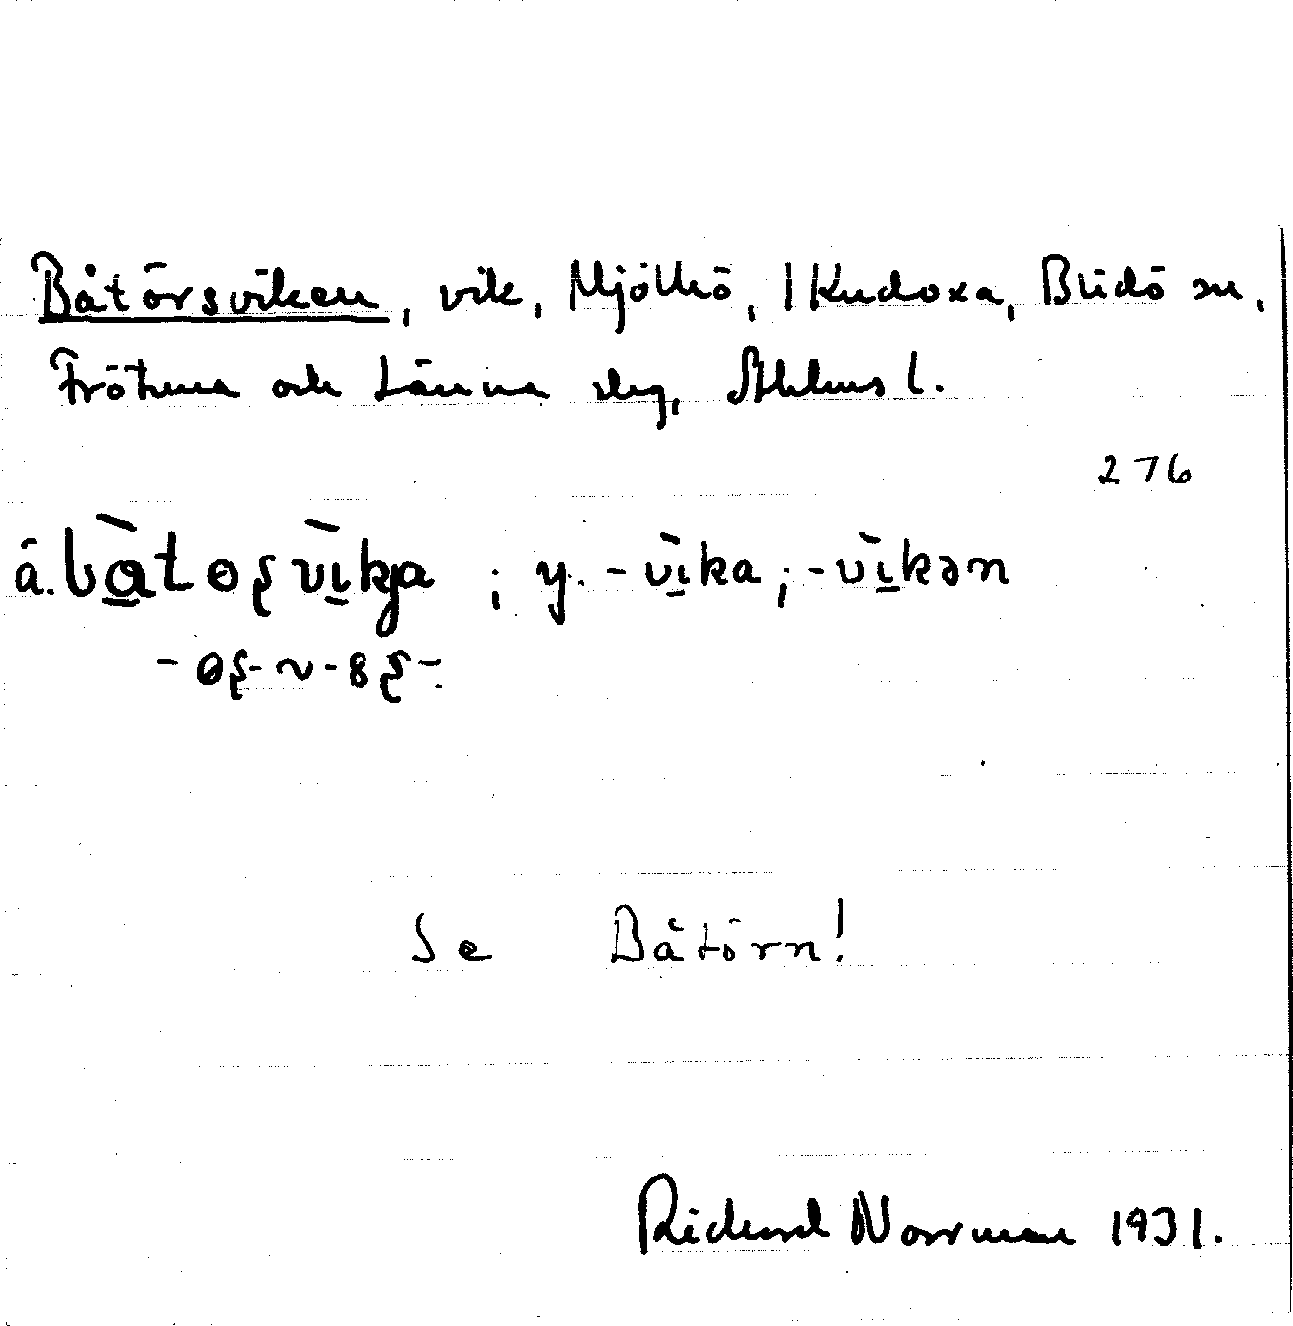 Båtörsviken, vik, Mjölkö, I Kudoxa, Blidö sn,
Frötuna och Länna slg, Sthlms l.
276
ä. bàtoʂvìkja ; y. -vìka ; -vìkən
Se Båtörn!
Rickard Norrman 1931.